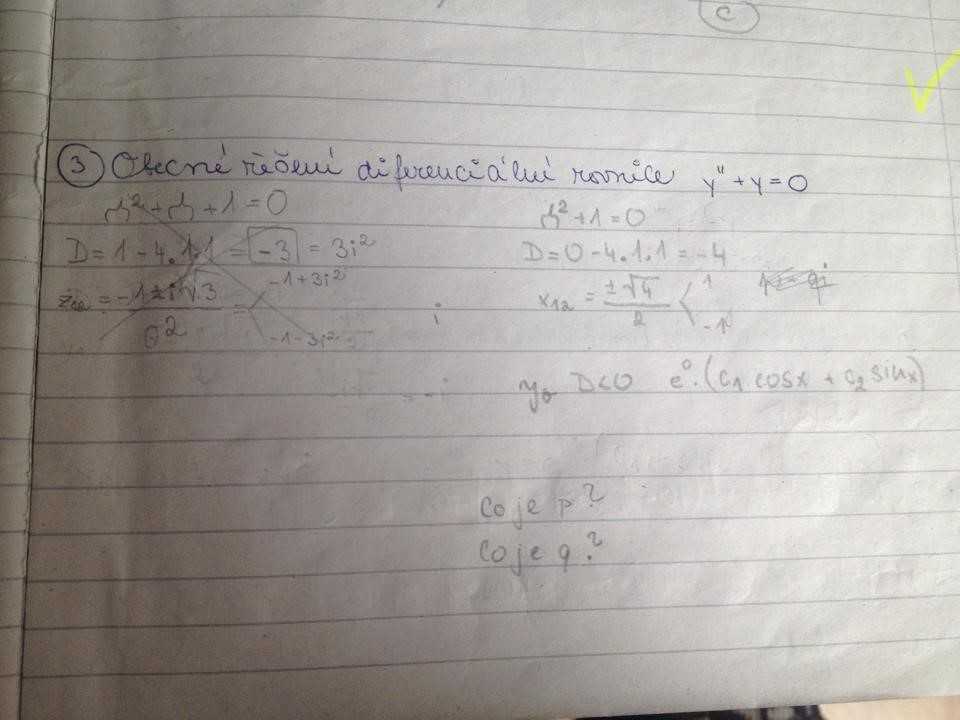 c
③ Obecné řešení diferenciální rovnice y" + y = 0
λ² + λ + 1 = 0
D = 1 - 4.1.1 = -3 = 3i²
z₁₂ = -1 ± i√3 / 2 = -1 + 3i²
-1 - 3i²
i
= -i
λ² + 1 = 0
D = 0 - 4.1.1 = -4
x₁₂ = ±√4 / 2 < 1
-1
y₀ D<0 e⁰.(c₁ cosx + c₂ sinx)
Co je p?
Co je q?